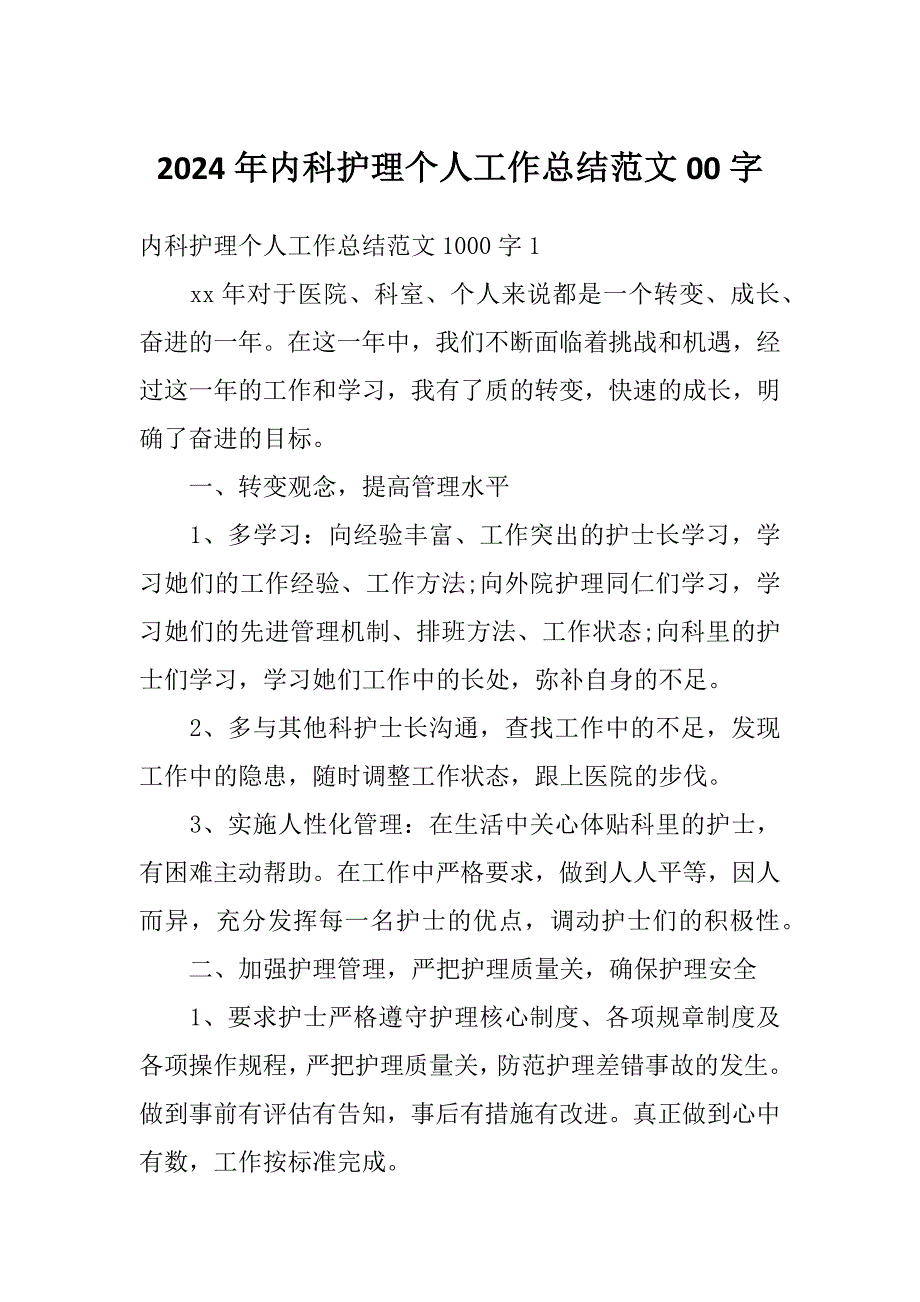 2024 年内科护理个人工作总结范文 00 字
内科护理个人工作总结范文 1000 字 1
xx 年对于医院、科室、个人来说都是一个转变、成长、
奋进的一年。在这一年中，我们不断面临着挑战和机遇，经
过这一年的工作和学习，我有了质的转变，快速的成长，明
确了奋进的目标。
一、转变观念，提高管理水平
1、多学习：向经验丰富、工作突出的护士长学习，学
习她们的工作经验、工作方法;向外院护理同仁们学习，学
习她们的先进管理机制、排班方法、工作状态;向科里的护
士们学习，学习她们工作中的长处，弥补自身的不足。
2、多与其他科护士长沟通，查找工作中的不足，发现
工作中的隐患，随时调整工作状态，跟上医院的步伐。
3、实施人性化管理：在生活中关心体贴科里的护士，
有困难主动帮助。在工作中严格要求，做到人人平等，因人
而异，充分发挥每一名护士的优点，调动护士们的积极性。
二、加强护理管理，严把护理质量关，确保护理安全
1、要求护士严格遵守护理核心制度、各项规章制度及
各项操作规程，严把护理质量关，防范护理差错事故的发生。
做到事前有评估有告知，事后有措施有改进。真正做到心中
有数，工作按标准完成。